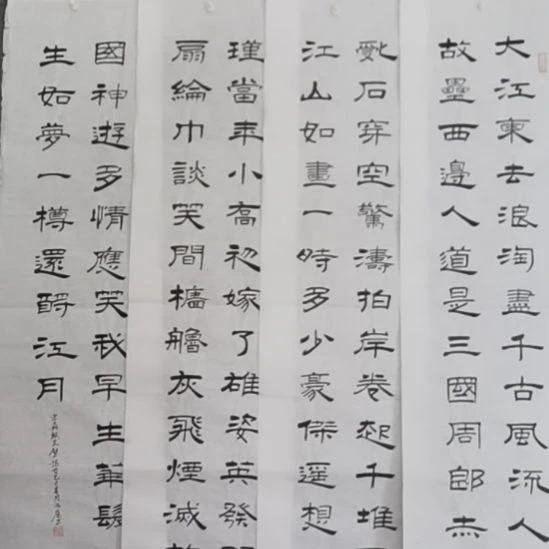 大江東去浪淘盡千古風流人
故壘西邊人道是三國周郎赤
亂石穿空驚濤拍岸卷起千堆
江山如畫一時多少豪傑遥想
瑾當年小喬初嫁了雄姿英發
扇綸巾談笑間檣艣灰飛煙滅
國神遊多情應笑我早生華髮
生如夢一樽還酹江月